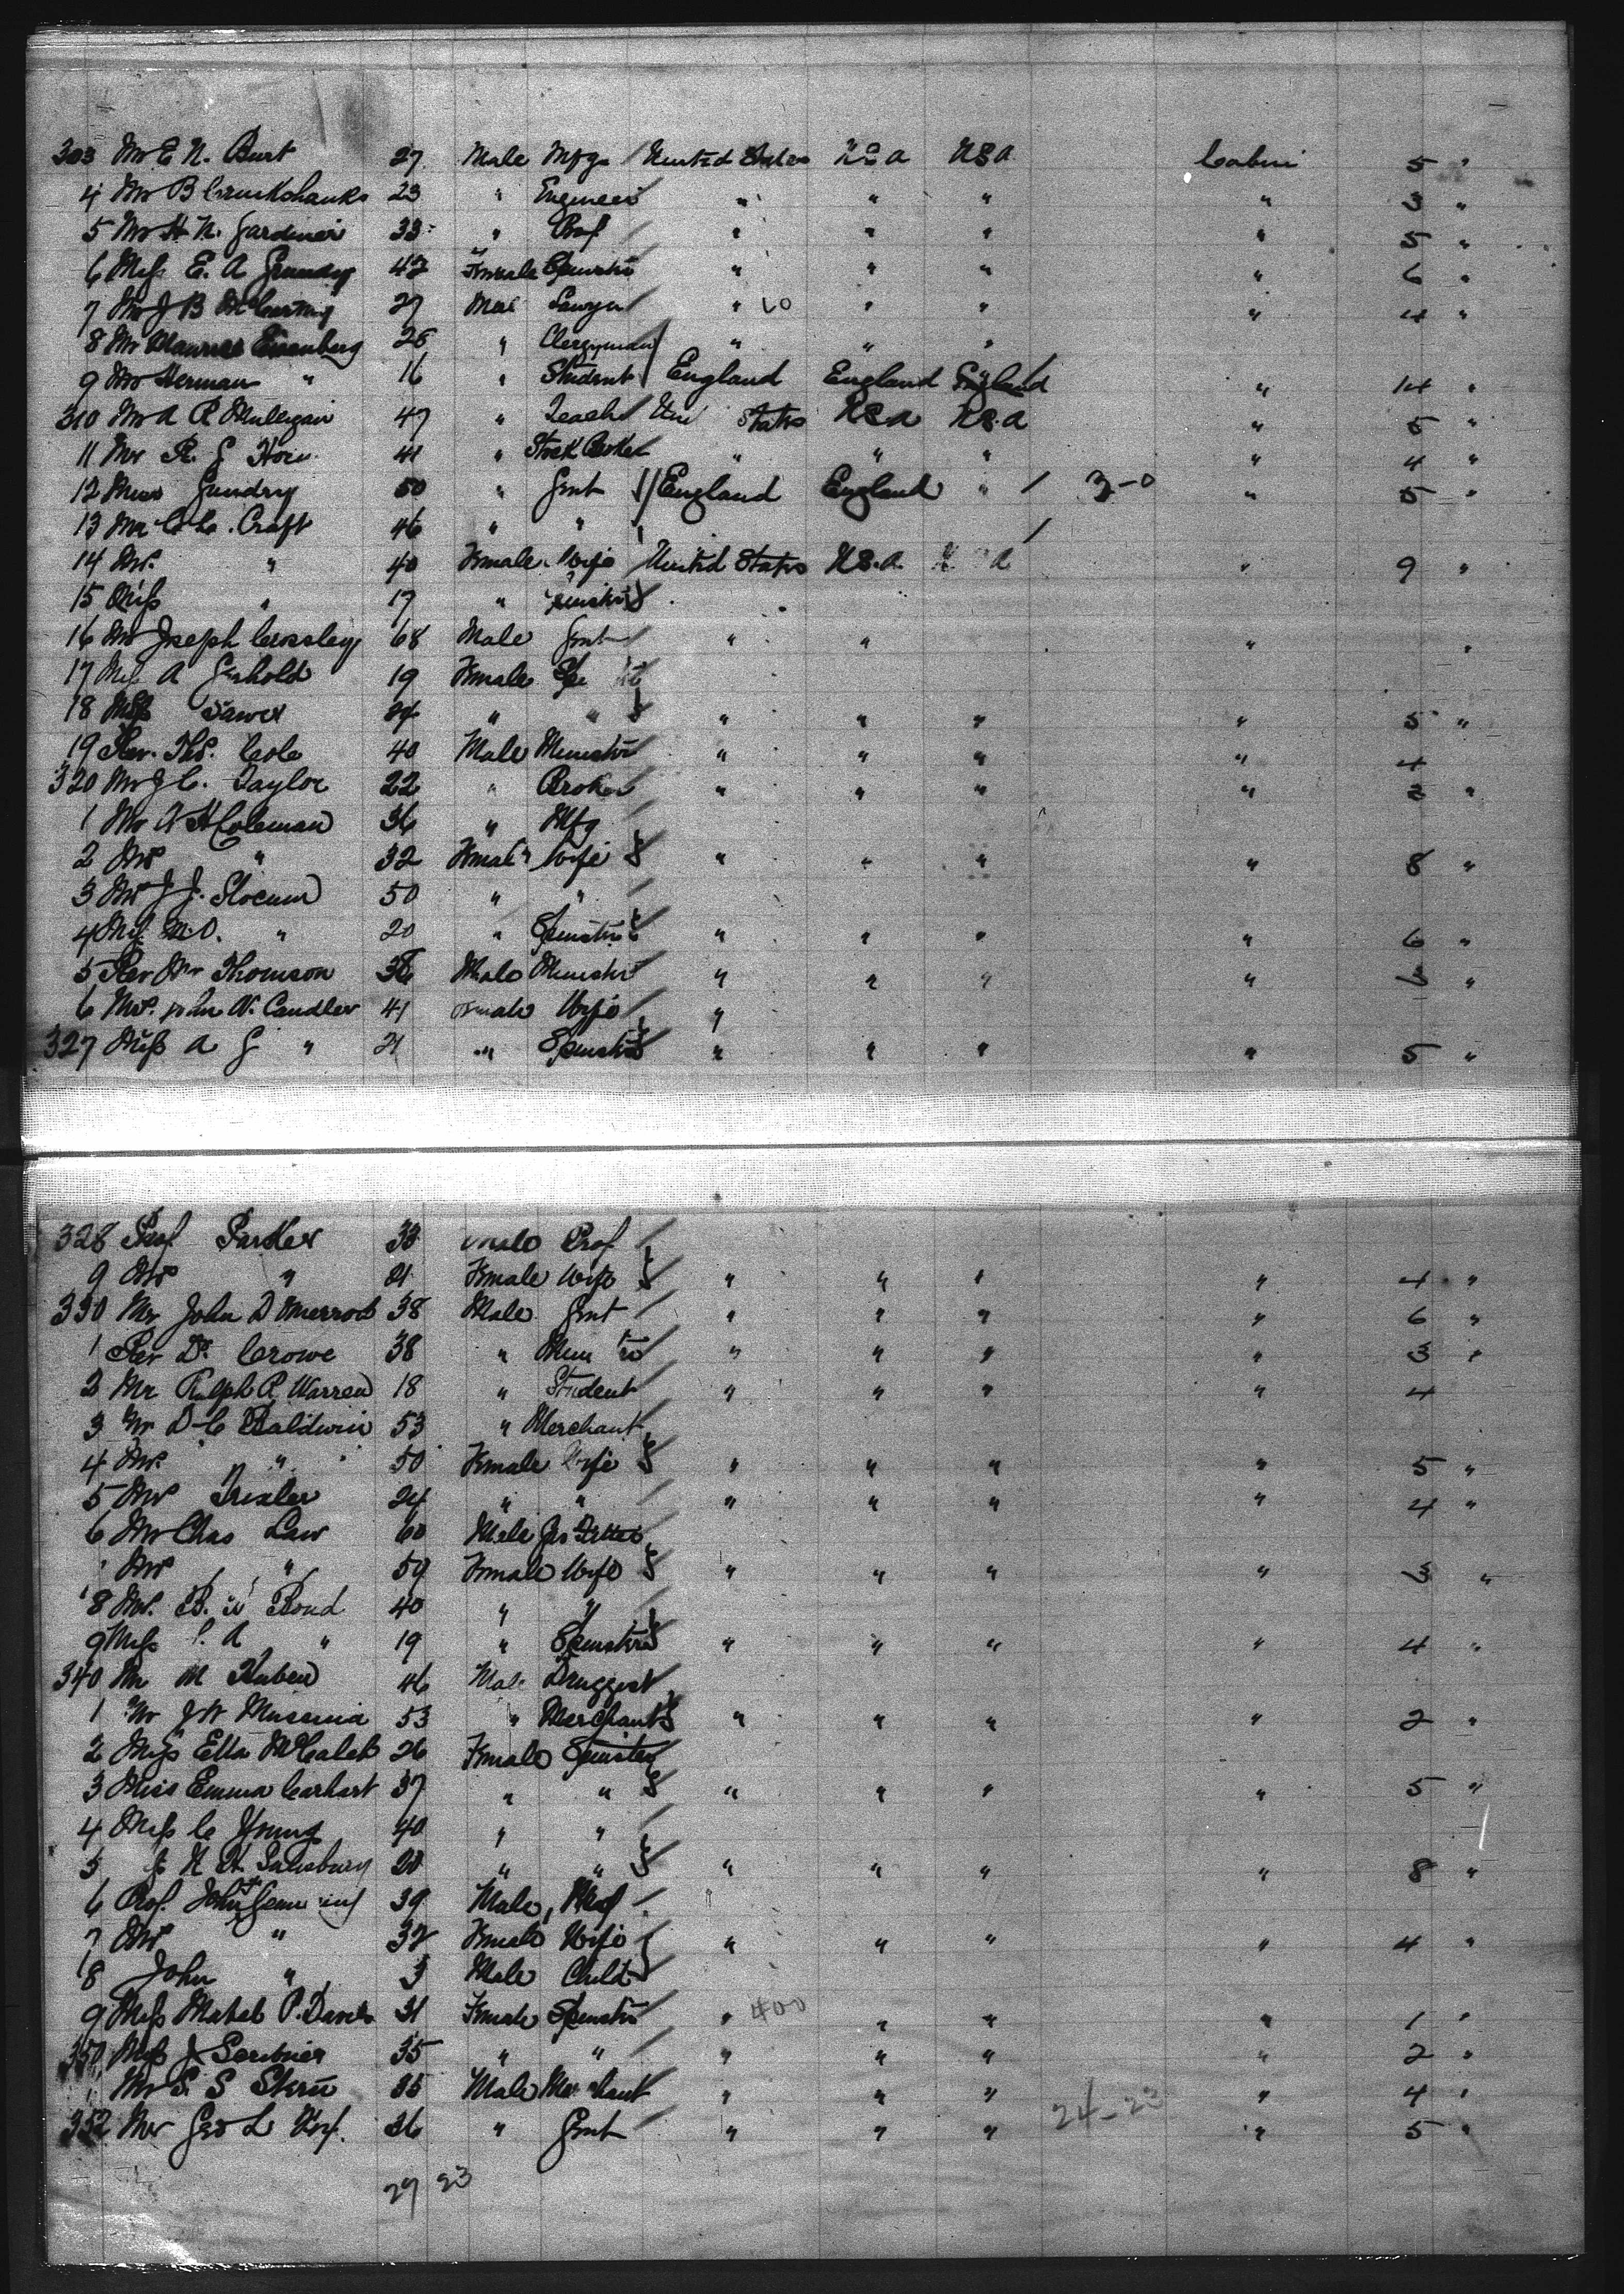 303 Mr E N. Burt 27 Male Mfgr United States U S A U S A Cabin 5 "
4 Mr B Cruikshanks 23 " Engineer " " " " 3 "
5 Mr H. N. Gardiner 33 " Prof " " " " 5 "
6 Miss E. A Grundy 42 Female Spinster " " " " 6 "
7 Mr J B McCartney 27 Male Lawyer " 10 " " " 4 "
8 Mr Maurice Eisenberg 28 " Clergyman " " "
9 Mr Herman " 16 " Student England England England " 14 "
310 Mr A R Mulligan 47 " Teacher Uni States U S A U S. A " 5 "
11 Mr R. G 41 " Stock Broker " " " " 4 "
12 Gundry 50 " Gent England England " 3-0 " 5 "
13 Mr C. L. Craft 46 " "
14 Mrs. " 40 Female Wife United States U S. A. A " 9 "
15 Miss " 17 " Spinster
16 Mr Joseph Crossley 68 Male Gent " " " "
17 Miss A 19 Female
18 Miss 24 " " " " " " 5 "
19 Rev. Thos. Cole 40 Male Minister " " " " 4
320 Mr J C. Taylor 22 " Broker " " " " 2 "
1 Mr A H Coleman 36 " Mfg
2 Mrs " 32 Female Wife " " " " 8 "
3 Mrs J J. Slocum 50 " "
4 Miss M. O. " 20 " Spinster " " " " 6 "
5 Rev Mr Thomson 36 Male Minister " " " " 3 "
6 Mrs. John W. Candler 41 Female Wife "
327 Miss A G " 21 " Spinster " " " " 5 "
328 Prof. Parker 33 Male Prof
9 Mrs " 21 Female Wife " " " " 4 "
330 Mr John D 38 Male Gent " " " " 6 "
1 Rev Dr. Crowe 38 " " " " " 3 "
2 Mr Ralph R. Warren 18 " Student " " " " 4
3 Mr D C Baldwin 53 " Merchant
4 Mrs. " 50 Female Wife " " " " 5 "
5 Mrs Trexler 24 " " " " " " 4 "
6 Mr Chas Law 60 Male Gas Fitter
Mrs " 59 Female Wife " " " " 3 "
8 Mrs. B. Bond 40 " "
9 Miss A " 19 " Spinster " " " " 4 "
340 Mr M 46 Male Druggist
1 Mr J W 53 " Merchant " " " " 2 "
2 Miss Etta McCaleb 26 Female Spinster
3 Miss Emma Carhart 37 " " " " " " 5 "
4 Miss C Young 40 " "
5 N H. Salisbury 28 " " " " " " 8 "
6 Prof. John 39 Male, Prof "
7 Mrs " 32 Female Wife " " " " 4 "
8 John " 3 Male Child
9 Miss Mabel P. Davis 31 Female Spinster " 400 " " " 1 "
350 Miss J Scribner 35 " " " " " " 2 "
1 Mr S. S 35 Male Merchant " " " " 4 "
352 Mr Geo L 36 " Gent " " " 24-23 " 5 "
29 23